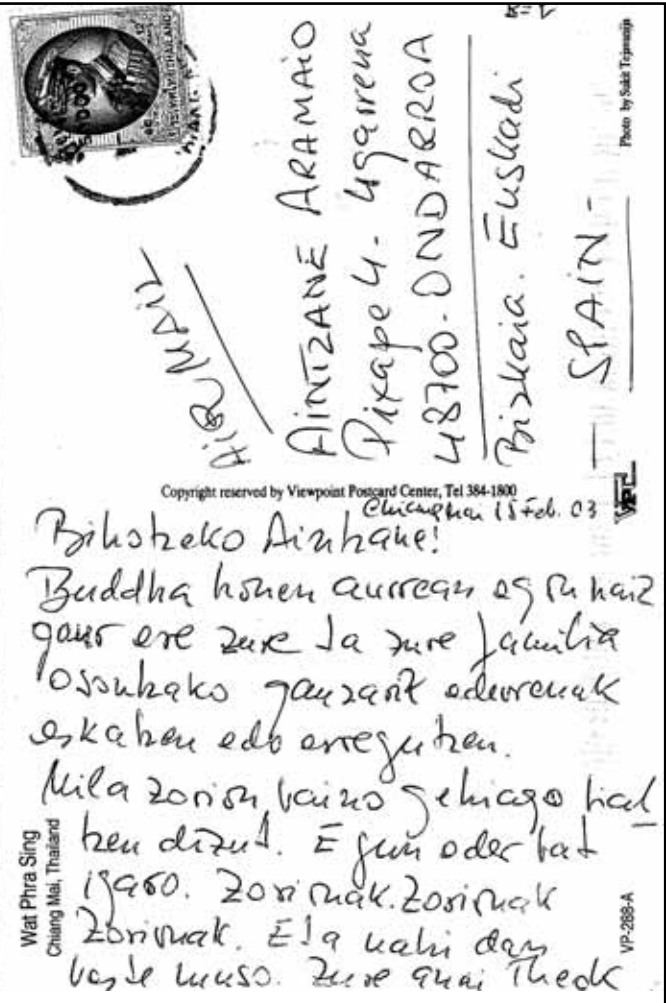 AiR MAiL
AINTZANE ARAMAIO
Pixape 4 - 4garrena
48700 - ONDARROA
Bizkaia. Euskadi
SPAIN -
Photo by Sukit Tejavanija
Copyright reserved by Viewpoint Postcard Center, Tel 384-1800
VPC
Chiangmai 15 Feb. 03
Bihotzeko Aintzane!
Buddha honen aurrean egon naiz
gaur ere zure ta zure familia
osontzako gauzarik ederrenak
eskatzen edo erregutzen.
Mila zorion baino gehiago bial
tzen dizut. Egun eder bat
igaro. Zorionak. Zorionak
Zorionak. Eta nahi dan
beste muso. Zure anai
Wat Phra Sing
Chiang Mai, Thailand
VP-288-A